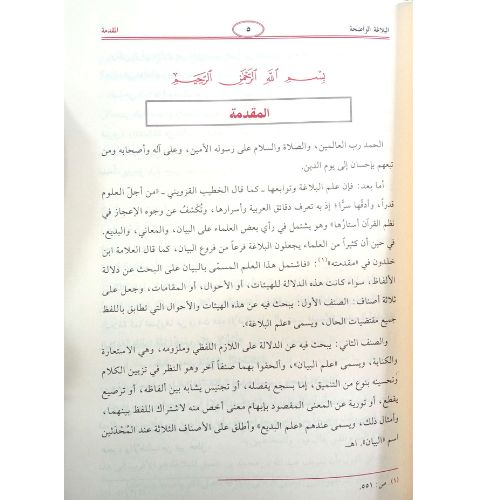 البلاغة الواضحة ٥ المقدمة
بِسْمِ اللَّهِ الرَّحْمَنِ الرَّحِيمِ
المقدمة
الحمد رب العالمين، والصلاة والسلام على رسوله الأمين، وعلى آله وأصحابه ومن
تبعهم بإحسان إلى يوم الدين.
أما بعد: فإن علم البلاغة وتوابعها ـ كما قال الخطيب القزويني ـ «من أجلّ العلوم
قدراً، وأدقها سرًّا» إذ به تعرف دقائق العربية وأسرارها، وتُكشفُ عن وجوه الإعجاز في
نظم القرآن أستارُها» وهو يشتمل في رأي بعض العلماء على البيان، والمعاني، والبديع.
في حين أن كثيراً من العلماء يجعلون البلاغة فرعاً من فروع البيان، كما قال العلامة ابن
خلدون في «مقدمته»(١): «فاشتمل هذا العلم المسمّى بالبيان على البحث عن دلالة
الألفاظ، سواء كانت هذه الدلالة للهيئات، أو الأحوال، أو المقامات، وجعل على
ثلاثة أصناف: الصنف الأول: يبحث فيه عن هذه الهيئات والأحوال التي تطابق باللفظ
جميع مقتضيات الحال، ويسمى «علم البلاغة».
والصنف الثاني: يبحث فيه عن الدلالة على اللازم اللفظي وملزومه، وهي الاستعارة
والكناية، ويسمى «علم البيان»، وألحقوا بهما صنفاً آخر وهو النظر في تزيين الكلام
وتحسينه بنوع من التنميق، إما بسجع يفصله، أو تجنيس يشابه بين ألفاظه، أو ترصيع
يقطع، أو تورية عن المعنى المقصود بإيهام معنى أخص منه لاشتراك اللفظ بينهما،
وأمثال ذلك، ويسمى عندهم «علم البديع» وأطلق على الأصناف الثلاثة عند المُحْدَثين
اسم «البيان». اهـ
(١) ص: ٥٥١.